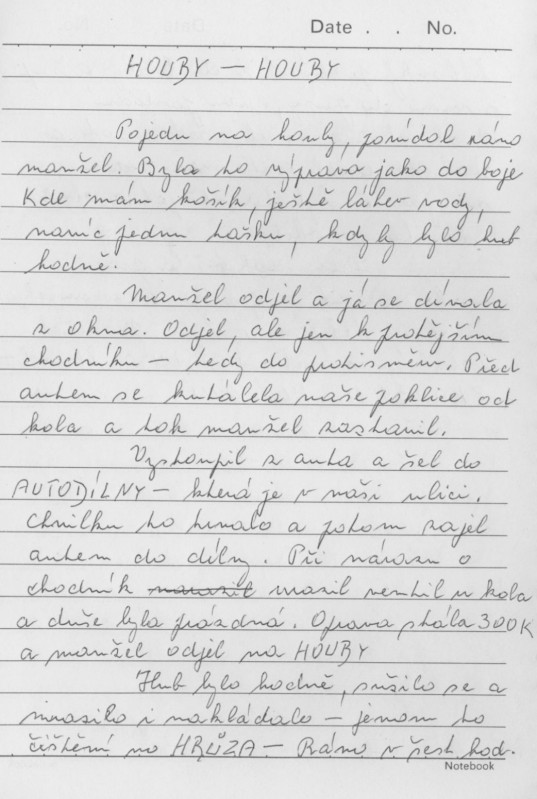 Date . . No.
HOUBY — HOUBY
Pojedu na houby, pořídol ráno
manžel. Byla to výprava jako do boje
Kde mám košík, ještě láhev vody,
navíc jednu tašku, kdyby bylo hub
hodně.
Manžel odjel a já se dívala
z okna. Odjel, ale jen k protějším
chodníku — tedy do protisměru. Před
autem se kutálela naše poklice od
kola a tak manžel zastavil.
Vystoupil z auta a šel do
AUTODÍLNY — která je v naší ulici.
Chvilku to trvalo a potom zajel
autem do dílny. Při nárazu o
chodník narazil urazil ventil u kola
a duše byla prázdná. Oprava stála 300K
a manžel odjel na HOUBY
Hub bylo hodně, sušilo se a
mrazilo i nakládalo — jenom to
čištění no HRŮZA — Ráno v šest hod.
Notebook